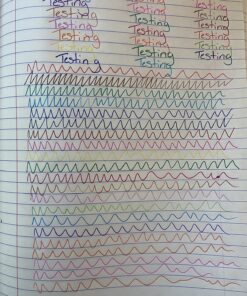 Testing Testing Testing
Testing Testing Testing
Testing Testing Testing
Testing Testing Testing
Testing Testing Testing
Testing Testing Testing